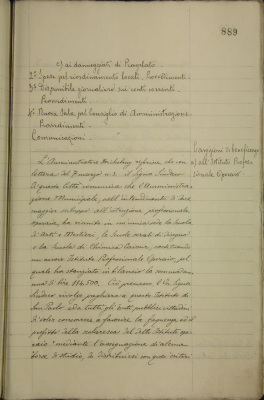 889
c) ai danneggiati di Pizzoleto
2° Spese pel riordinamento locali. Provvedimenti.
3° Disponibile giornaliero sui conti correnti.
Provvedimenti.
4° Nuova Sala pel Consiglio di Amministrazione.
Provvedimenti.
Comunicazioni.
Erogazioni in beneficenza
a) all'Istituto Profes-
sionale Operaio
L'Amministratore riferisce che con
lettera del 7 marzo u.s. il Signor Sindaco
di questa Città comunica che l'Amministra-
zione Municipale, nell'intendimento di dare
maggiore sviluppo all'istruzione professionale
operaia, ha riunito in un'unica la Scuola
d'Arti e Mestieri, la Scuola serale di disegno
e la Scuola di Chimica Cavour, costituendo
un nuovo Istituto Professionale Operaio, pel
quale ha stanziato in bilancio la somma an-
nua di Lire 114.500. Ciò premesso il Sig. Signor
Sindaco rivolge preghiera a questo Istituto di
San Paolo ed a tutti gli enti pubblici cittadini
di voler concorrere a favorire la frequenza ed il
profitto della scolaresca del detto Istituto ope-
raio mediante l'assegnazione di alcune
borse di studio, da distribuirsi con quei criteri